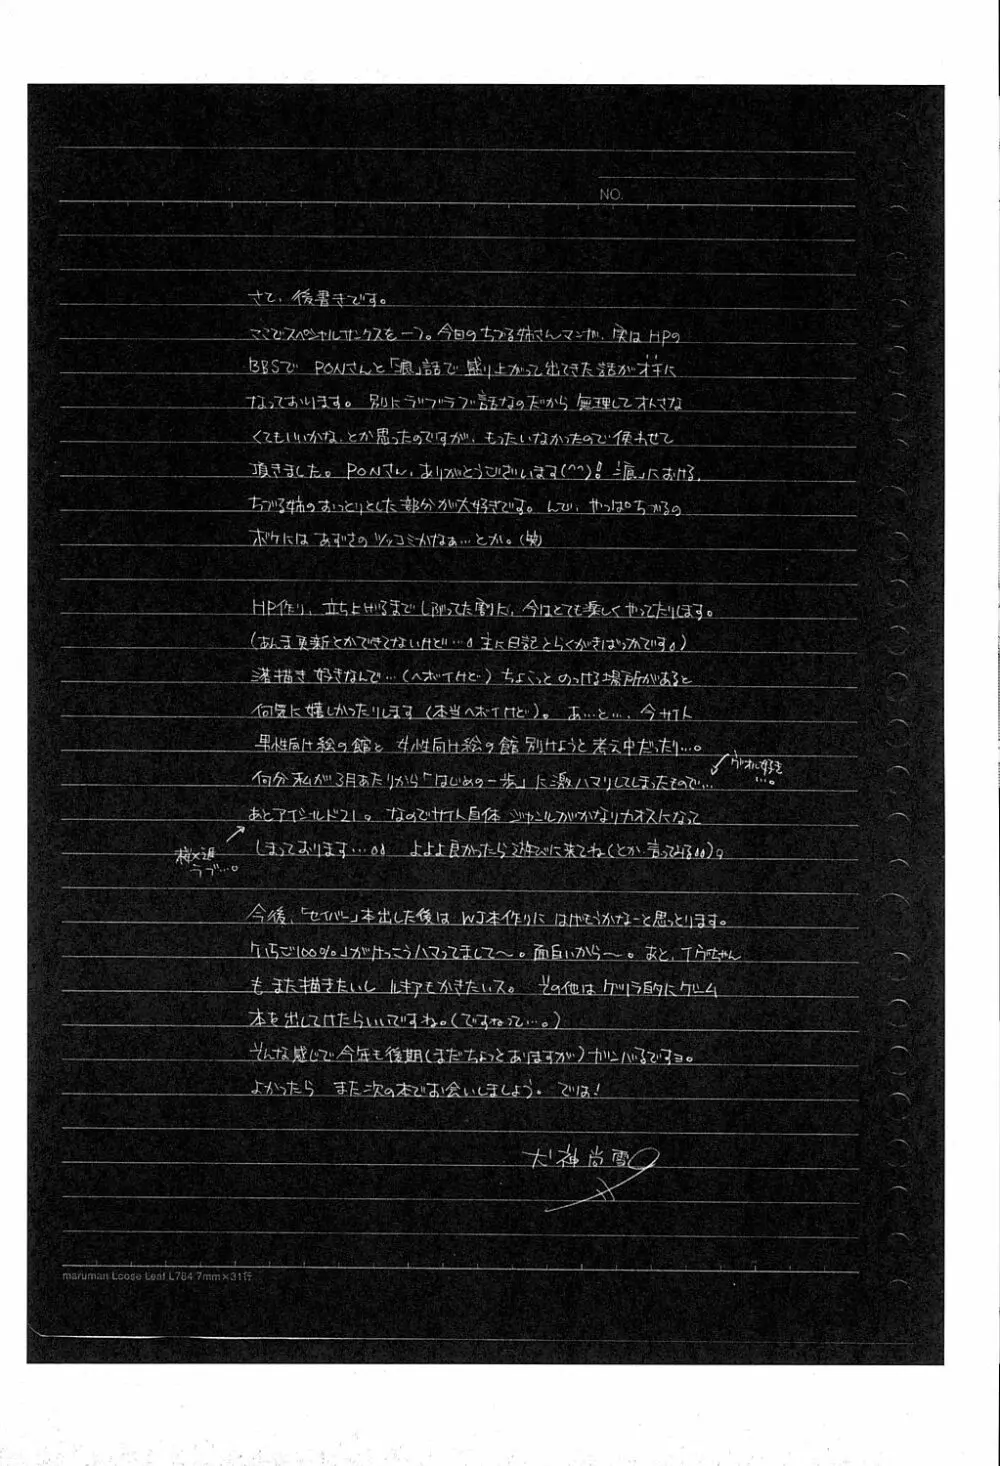 NO.
さて、後書きです。
ここでスペシャルサンクスを一つ。今回のちづる姉さんマンガ、実はHPの
BBSで PONさんと「痕」話で盛り上がって出てきた話がオチに
なっております。別にラブラブ話なのだから無理してオトさな
くてもいいかな、とか思ったのですが、もったいなかったので使わせて
頂きました。PONさん、ありがとうございます(^^)!「痕」における、
ちづる姉のおっとりとした部分が大好きです。んで、やっぱちづるの
ボケにはあずさのツッコミかなぁ…とか。(笑)
HP作り、立ち上げるまでしぶってた割に、今はとても楽しくやってたりします。
(あんま更新とかできてないけど…。主に日記とらくがきばっかです。)
落描き好きなんで…(ヘボイけど)ちょこっとのっける場所があると
何気に嬉しかったりします(本当ヘボイけど)。あ…と…、今サイト
男性向け絵の館と女性向け絵の館別けようと考え中だったり…。
何分私が3月あたりから「はじめの一歩」に激ハマリしてしまったもので…
ヴォルグ好き
…。
あとアイシールド21。なのでサイト自体ジャンルがかなりカオスになって
桜×進
ラブ…。
しまっております…。 よよよ良かったら遊びに来てね(とか言ってみる)。
今後、「セイバー」本出した後はWJ本作りにはげもうかなーと思っとります。
「いちご100%」がけっこうハマってまして〜。面白いから〜。あと、イヴちゃん
もまた描きたいしルキアもかきたいス。その他はゲリラ的にゲーム
本を出してけたらいいですね。(ですねって…。)
そんな感じで今年も後期(まだちょっとありますが)ガンバるですョ。
よかったら また次の本でお会いしましょう。では!
犬神尚雪
maruman Loose Leaf L784 7mm×31行